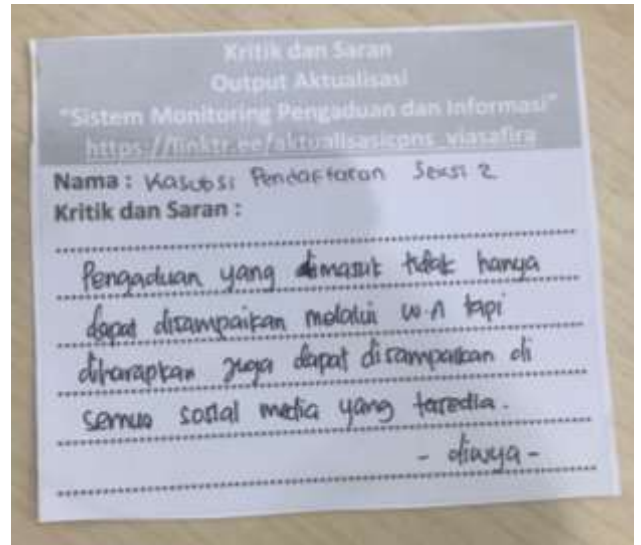 Kritik dan Saran
Output Aktualisasi
"Sistem Monitoring Pengaduan dan Informasi"
https://linktr.ee/aktualisasicpns_viasafira
Nama : Kasubsi Pendaftaran Seksi 2
Kritik dan Saran :
Pengaduan yang dimasuk tidak hanya
dapat disampaikan melalui W.A tapi
diharapkan juga dapat disampaikan di
semua sosial media yang tersedia.
- diwya -